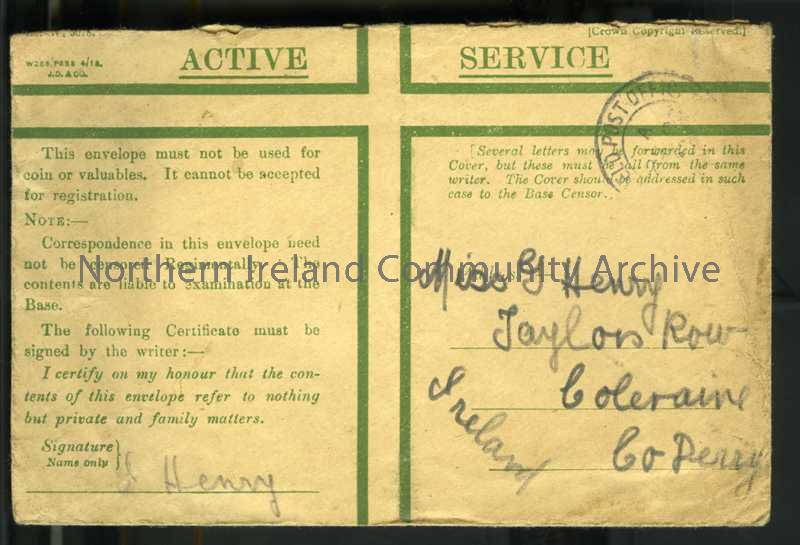 3078.
[Crown Copyright Reserved.]
ACTIVE SERVICE
4/18.
J.D. & CO.
This envelope must not be used for
coin or valuables. It cannot be accepted
for registration.
NOTE:—
Correspondence in this envelope need
not be censored Regimentally. The
contents are liable to examination at the
Base.
The following Certificate must be
signed by the writer:—
I certify on my honour that the con-
tents of this envelope refer to nothing
but private and family matters.
Signature
Name only
Henry
POST OFFICE
[Several letters may be forwarded in this
Cover, but these must be all from the same
writer. The Cover should be addressed in such
case to the Base Censor.
Miss G Henry
Taylors Row
Coleraine
Co Derry
Ireland
Northern Ireland Community Archive